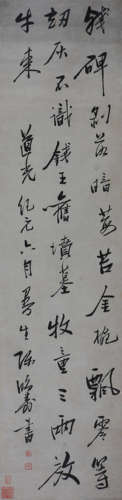 碑剝落暗莓苔金椀飄零等
劫灰不識錢王舊墳墓牧童三兩放
牛來 道光紀元六月曼生陳鴻壽書